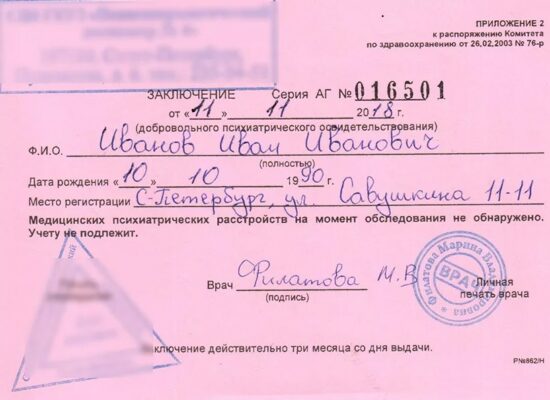 ПРИЛОЖЕНИЕ 2
к распоряжению Комитета
по здравоохранению от 26,02,2003 № 76-р
ЗАКЛЮЧЕНИЕ Серия АГ № 016501
от «11» 11 2018 г.
(добровольного психиатрического освидетельствования)
Ф.И.О. Иванов Иван Иванович
(полностью)
Дата рождения «10» 10 1990 г.
Место регистрации С-Петербург, ул. Савушкина 11-11
Медицинских психиатрических расстройств на момент обследования не обнаружено.
Учету не подлежит.
Врач Филатова М.В
(подпись)
Личная
печать врача
Филатова Марина Владимировна
ВРАЧ
ключение действительно три месяца со дня выдачи.
Р№862/Н